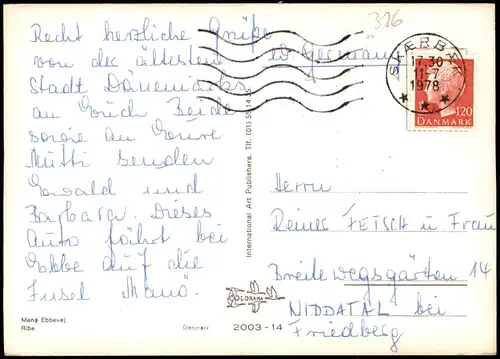 Recht herzliche Grüße
von der ältesten
Stadt Dänemarks
an Euch Beide
sowie an Eure
Mutti senden
Ewald und
Barbara. Dieses
Auto fährt bei
Ebbe auf die
Insel Manö.
Manø Ebbevej
Ribe
Danmark
2003-14
COLORAMA
International Art Publishers. Tlf. (01) 55 14
326
W Germany
SKÆRBÆK
17.30
11-7
1978
120
DANMARK
Herrn
Reiner FETSCH u. Frau
Breite wegsgärten 14
NIDDATAL bei
Friedberg